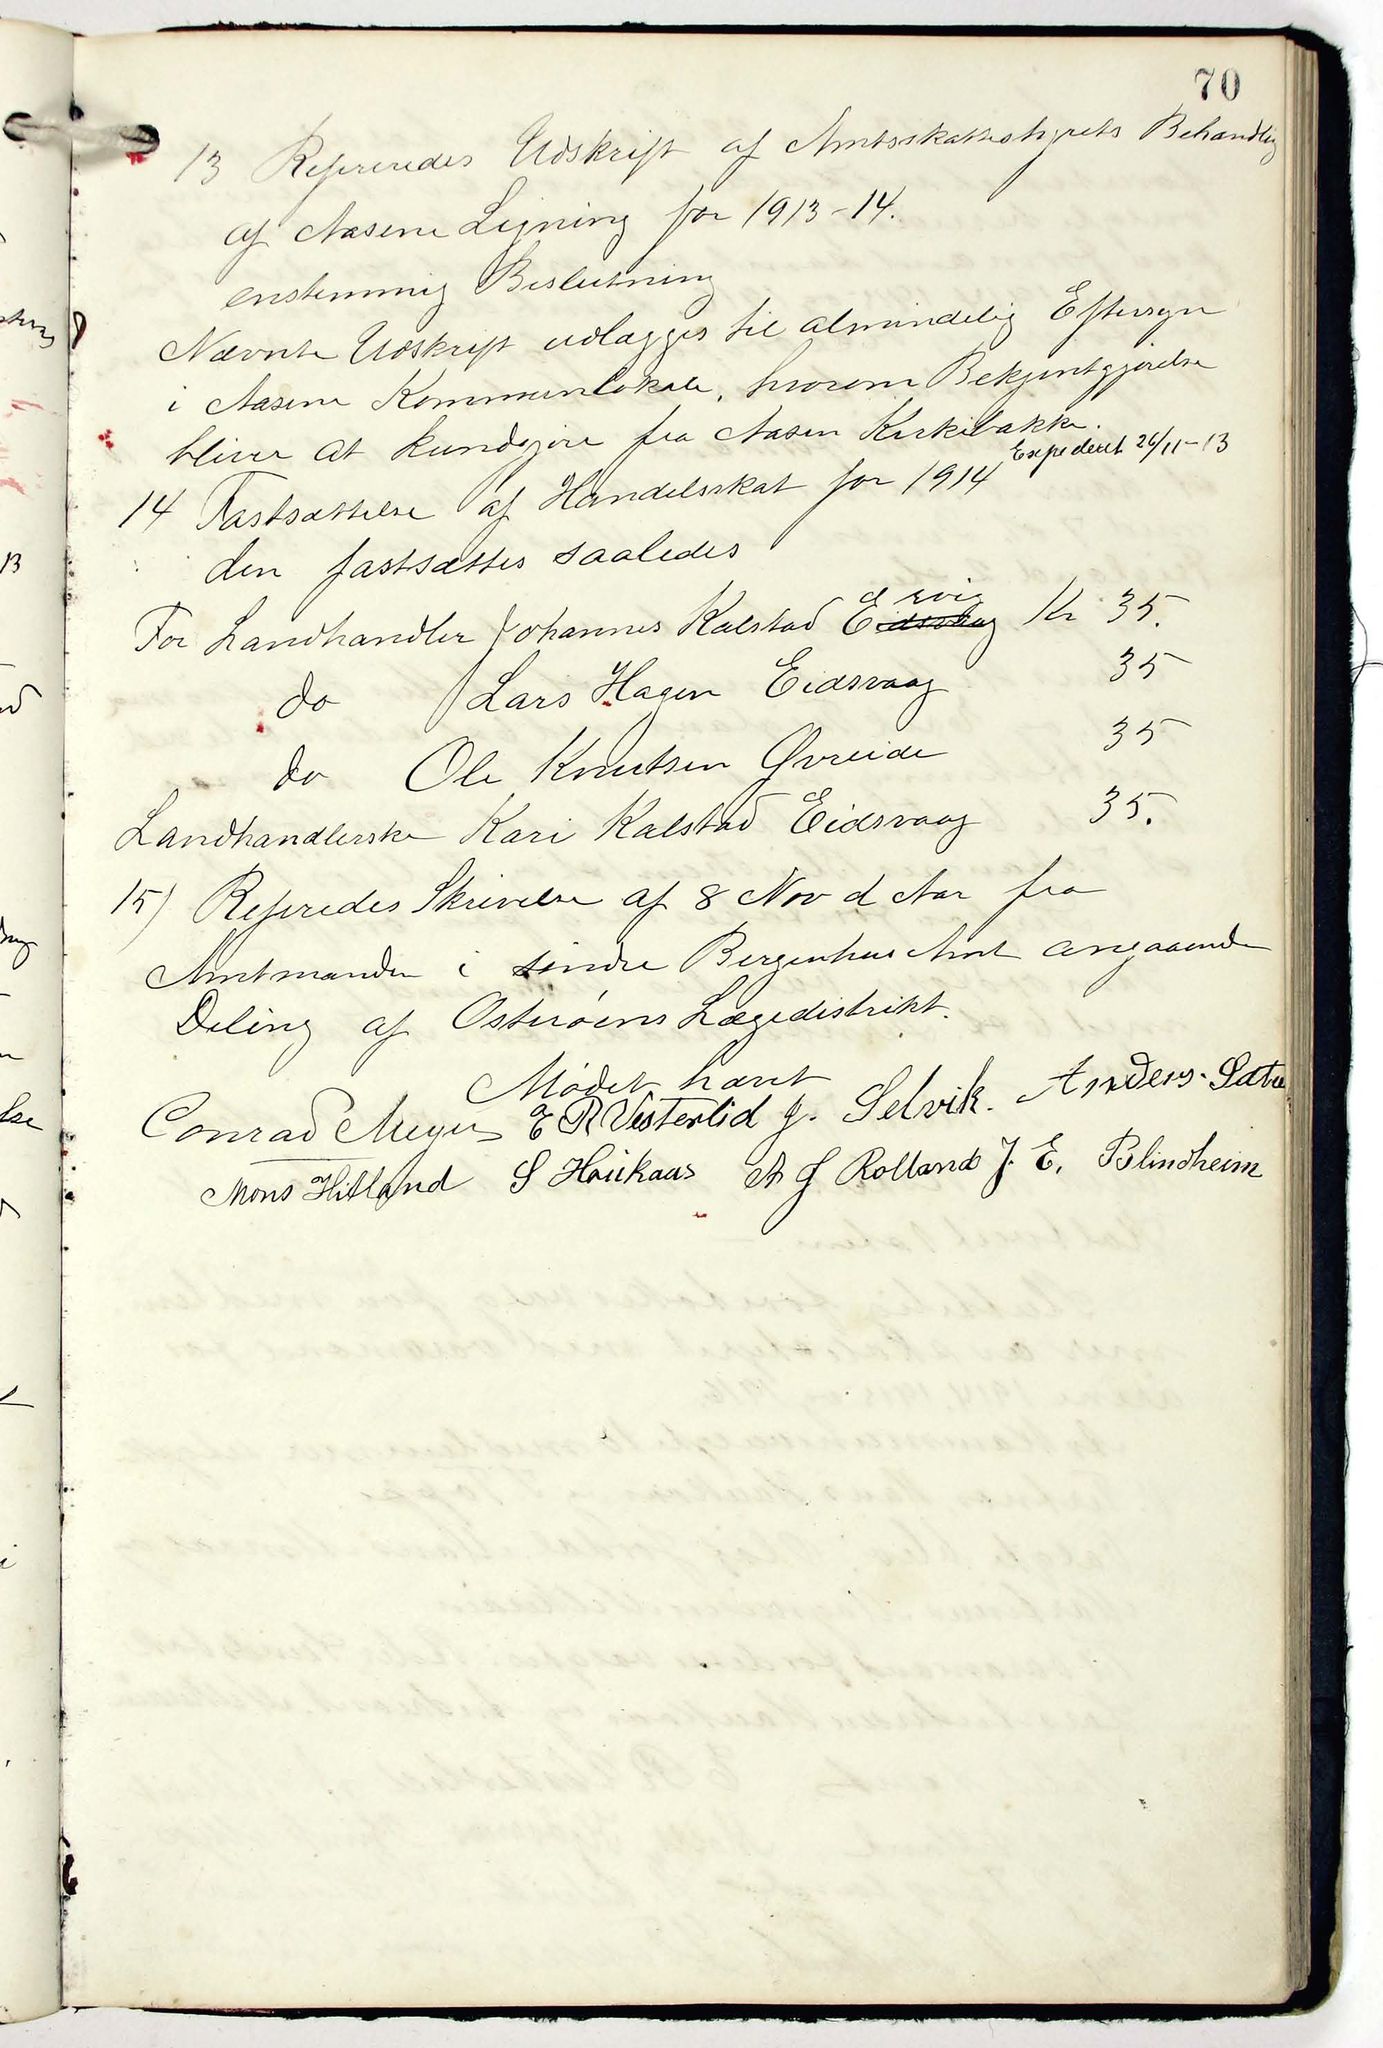 70
13 Refereredes Udskrift af Amtsskattestyrets Behandlig
af Aasene Ligning for 1913-14.
enstemmig Beslutning
Nævnte Udskrift udlægges til almindelig Eftersyn
i Aasene Kommunelokale, hvorom Bekjentgjørelse
bliver at kundgjøre fra Aasen Kirkebakke.
Expederet 26/11-13
14 Fastsættelse af Handelsskat for 1914
den fastsættes saaledes
For Landhandler Johannes Kalstad Eidsvaag Kr 35.
do Lars Hagen Eidsvaag 35
do Ole Knutsen Øvreide 35
Landhandlerske Kari Kalstad Eidsvaag 35.
15) Referedes Skrivelse af 8 Nov d Aar fra
Amtmanden i søndre Bergenhus Amt angaaende
Deling af Osterøens Lægedistrikt.
Mødet hævt
Conrad Meyer E R Vesterlid J. Selvik. Anders Sætre
Mons Hitland S Haukaas A J Rolland J. E. Blindheim